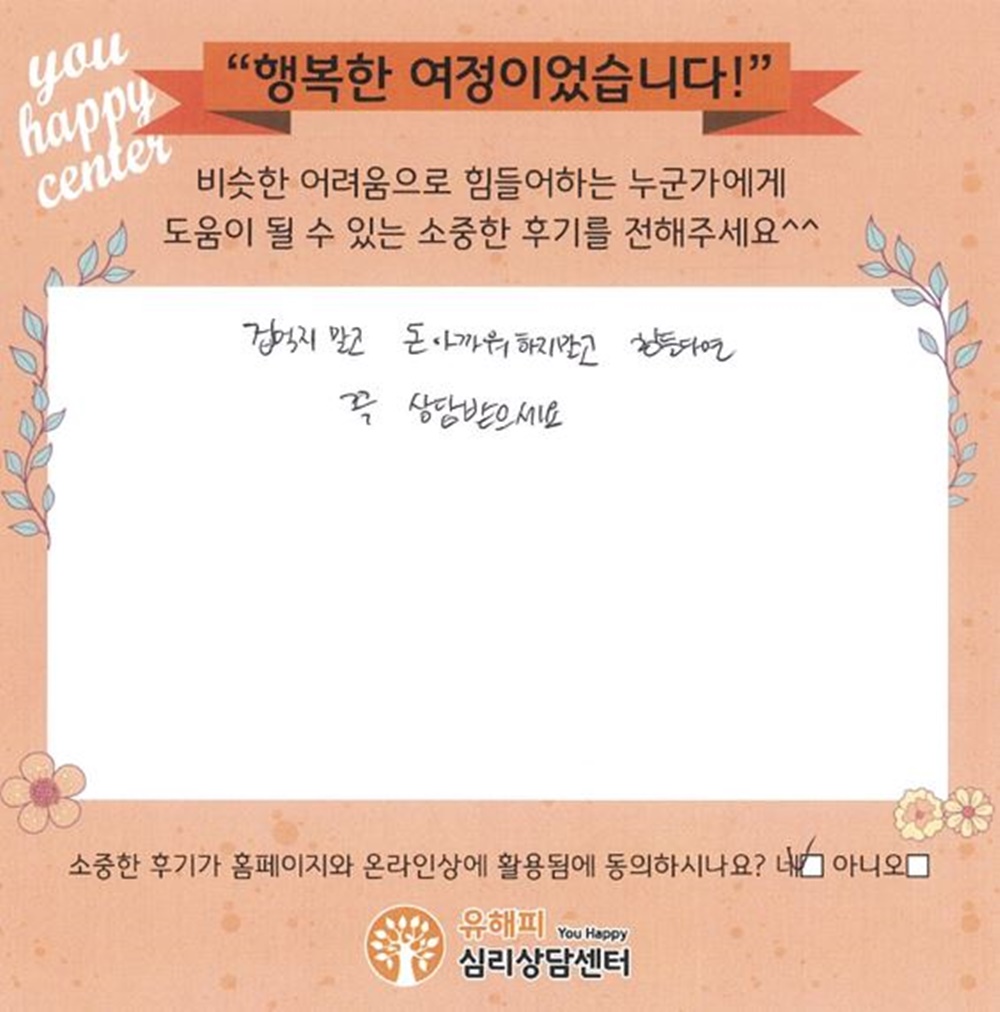 you
happy
center
“행복한 여정이었습니다!”
비슷한 어려움으로 힘들어하는 누군가에게
도움이 될 수 있는 소중한 후기를 전해주세요^^
겁먹지 말고 돈 아까워 하지말고 힘들다면
꼭 상담받으세요
소중한 후기가 홈페이지와 온라인상에 활용됨에 동의하시나요? 네 아니오
유해피 You Happy
심리상담센터